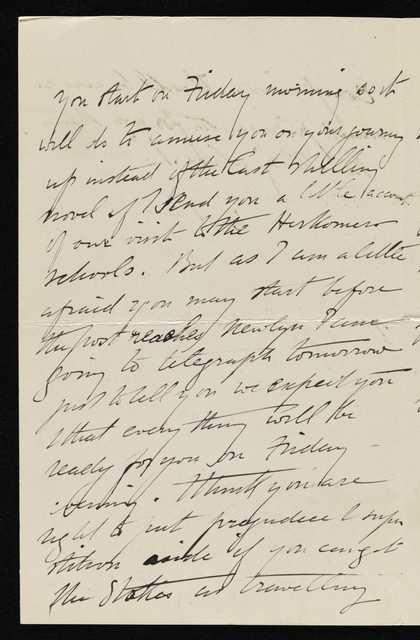 you start on Friday morning so it
will do to amuse you on your journey
up instead of the last shilling
novel if I send you a little account
of our visit to the Herkomer
Schools. But as I am a little
afraid you may start before
the post reaches Newlyn I am
going to telegraph tomorrow
just to tell you we expect you
& that everything will be
ready for you on Friday
evening. I think you are
right to put prejudice & super
stition aside if you can get
the Stokes as travelling